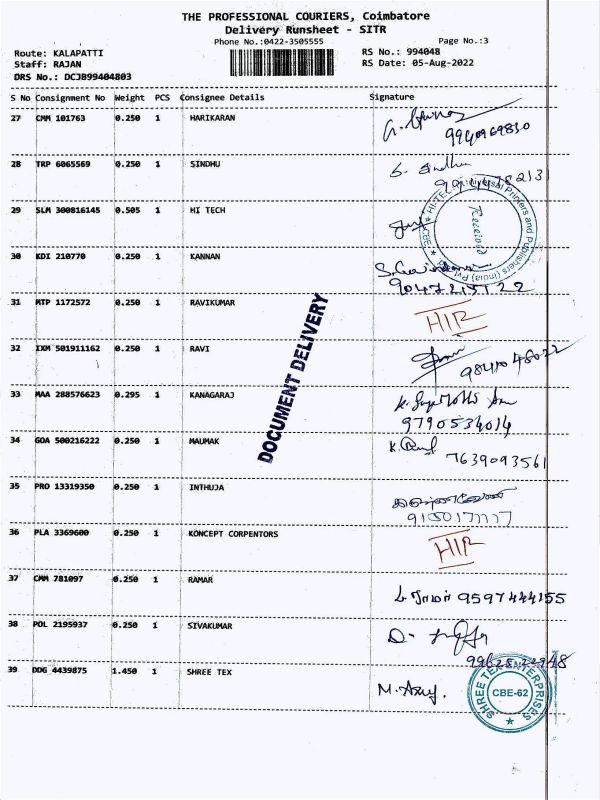 THE PROFESSIONAL COURIERS, Coimbatore
Delivery Runsheet - SITR
Phone No.:0422-3505555 Page No.:3
Route: KALAPATTI RS No.: 994048
Staff: RAJAN RS Date: 05-Aug-2022
DRS No.: DCJB99404803
S No Consignment No Weight PCS Consignee Details Signature
27 CMM 101763 0.250 1 HARIKARAN
28 TRP 6065569 0.250 1 SINDHU
S. Sindhu
29 SLM 300816145 0.505 1 HI TECH
HI-TEC Universal Printers and Publishers (India) Pvt CBE.
Received
30 KDI 210770 0.250 1 KANNAN
31 MTP 1172572 0.250 1 RAVIKUMAR
HIR
32 IXM 501911162 0.250 1 RAVI
33 MAA 288576623 0.295 1 KANAGARAJ
9790534014
34 GOA 500216222 0.250 1 MAUMAK
7639093561
DOCUMENT DELIVERY
35 PRO 13319350 0.250 1 INTHUJA
36 PLA 3369600 0.250 1 KONCEPT CORPENTORS
HIR
37 CMM 781097 0.250 1 RAMAR
9597444155
38 POL 2195937 0.250 1 SIVAKUMAR
39 DDG 4439875 1.450 1 SHREE TEX
SHREE TEX ENTERPRISES
CBE-62